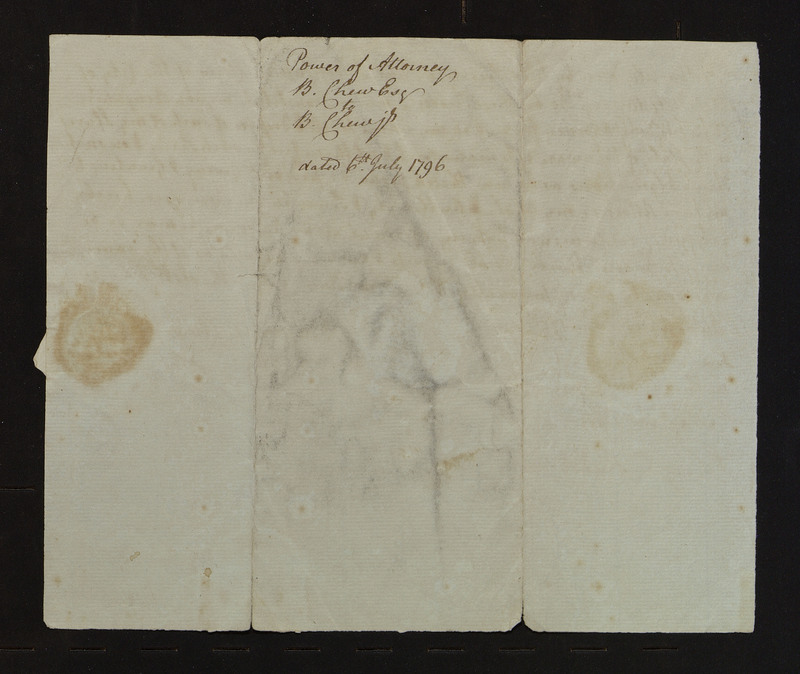 Power of Attorney
B. Chew Esq
to
B. Chew jr
dated 6th. July 1796